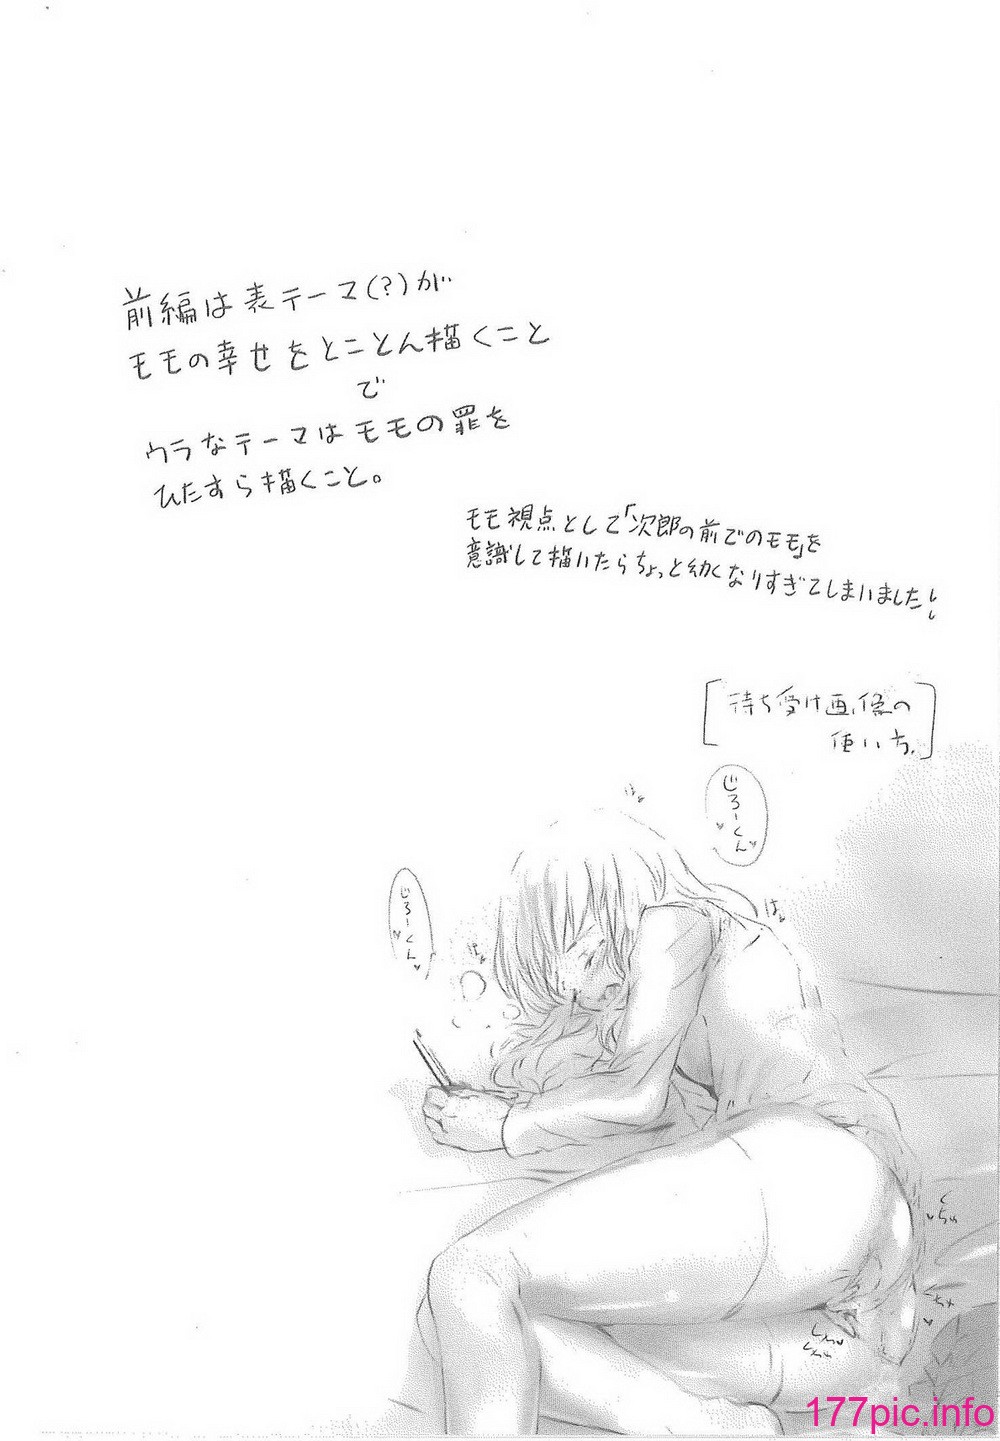 前編は表テーマ(?)が
モモの幸せをとことん描くこと
で
ウラなテーマはモモの罪を
ひたすら描くこと。
モモ視点として「次郎の前でのモモ」を
意識して描いたらちょっと幼くなりすぎてしまいました!!
[待ち受け画像の
使い方。]
じろーくん♥
じろーくん♥
はぁ
はぁ
はぁ
くちゅ
くちゅ
177pic.info